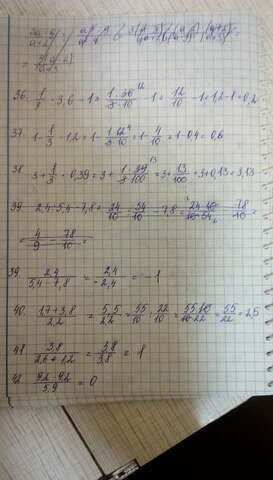 36. 1/3 · 3,6 - 1 = 1·36/3·10 - 1 = 12/10 - 1 = 1,2 - 1 = 0,2
37 1 - 1/3 · 1,2 = 1 - 1·12/3·10 = 1 - 4/10 = 1 - 0,4 = 0,6
38 3 + 1/3 · 0,39 = 3 + 1·39/3·100 = 3 + 13/100 = 3 + 0,13 = 3,13
39 2,4 : 5,4 - 7,8 = 24/10 : 54/10 - 7,8 = 24·10/10·54 - 78/10 =
= 4/9 - 78/10 =
39 2,4/5,4-7,8 = 2,4/-2,4 = -1
40. 17+3,8/2,2 = 5,5/2,2 = 55/10 : 22/10 = 55·10/10·22 = 55/22 = 2,5
41 3,8/2,6+1,2 = 3,8/3,8 = 1
42 9,2-9,2/5,9 = 0